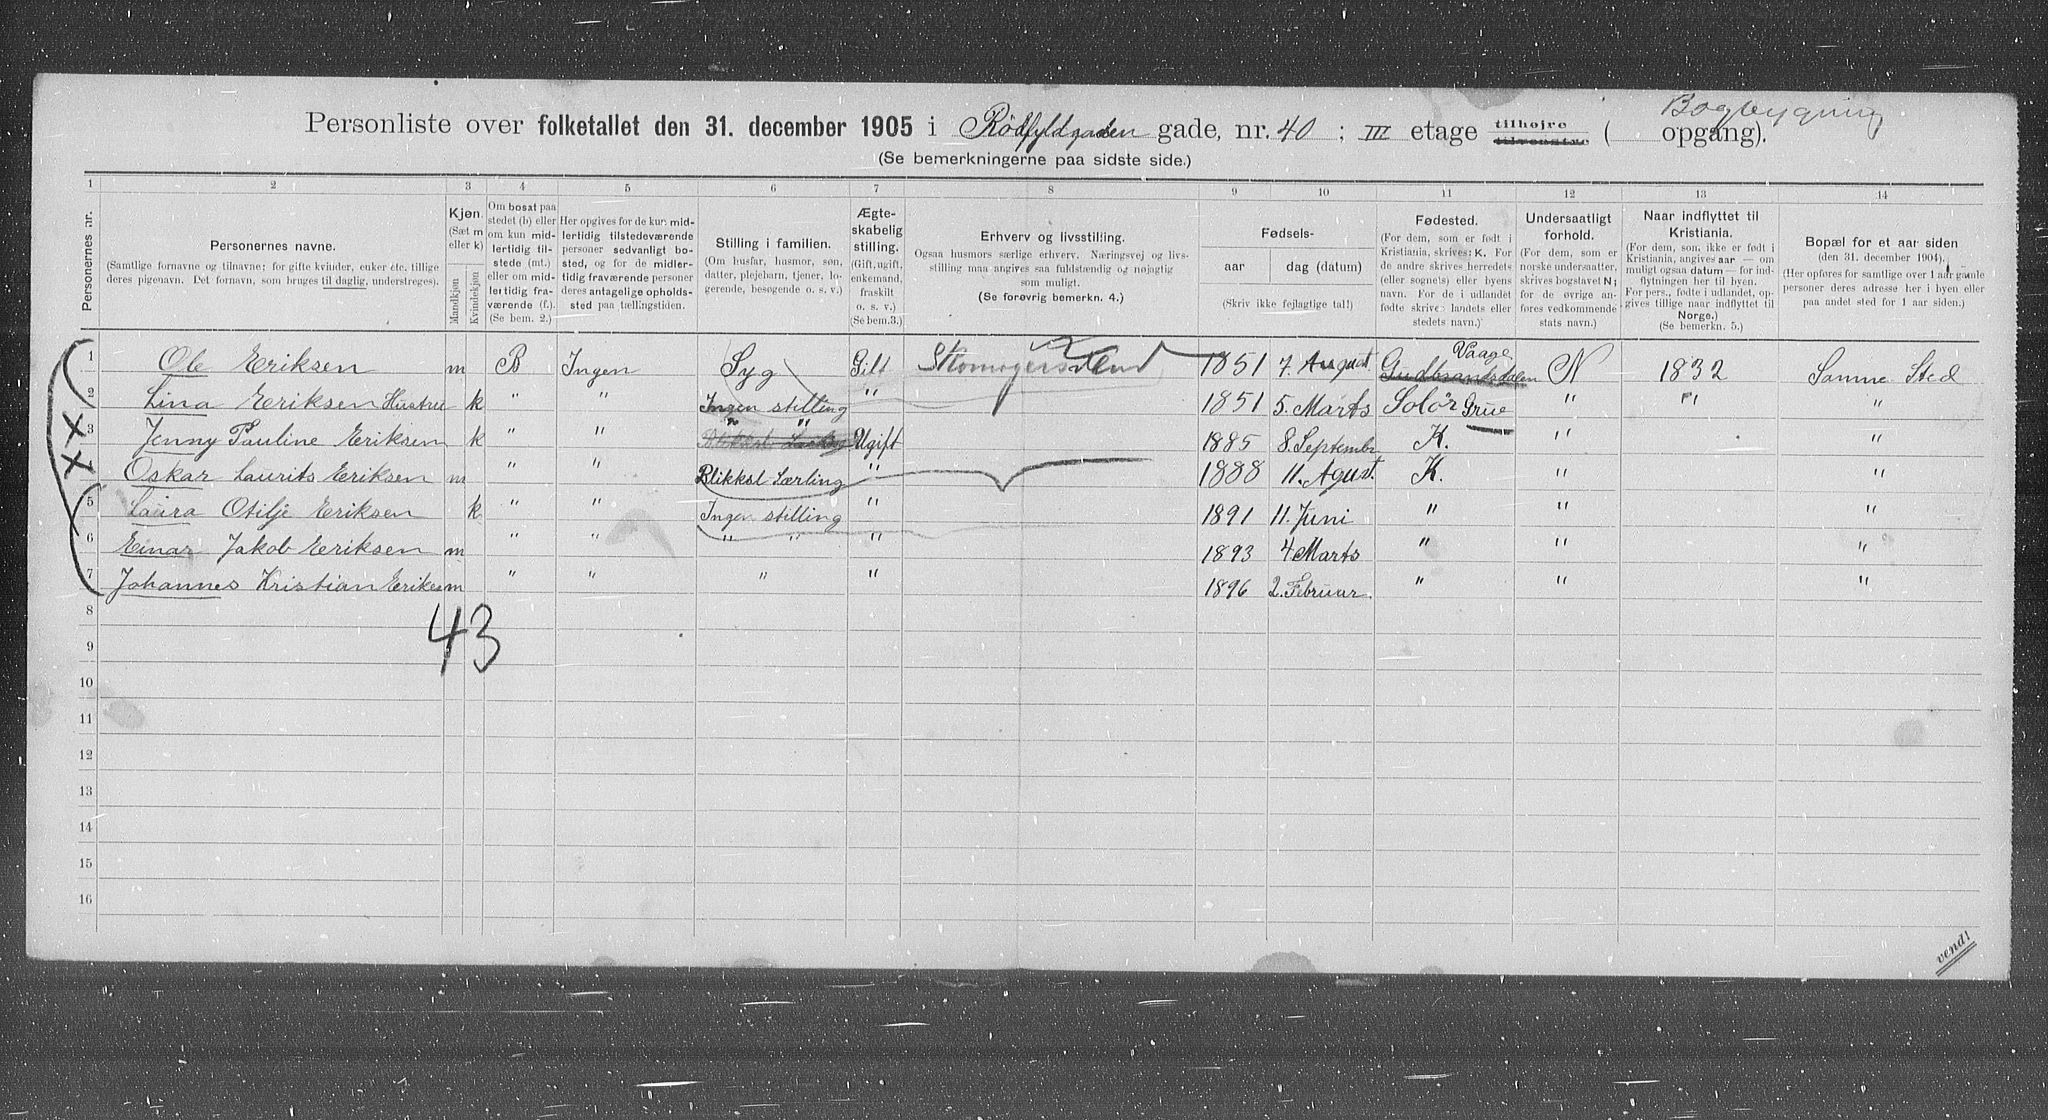 Bagbygning
Personliste over folketallet den 31. december 1905 i Rödfyldgaden gade, nr. 40 ; III etage tilhøjre tilvenstre ( opgang).
(Se bemerkningerne paa sidste side.)
1 2 3 4 5 6 7 8 9 10 11 12 13 14
Personernes nr.
Personernes navne.
(Samtlige fornavne og tilnavne; for gifte kvinder, enker etc. tillige
deres pigenavn. Det fornavn, som bruges til daglig, understreges).
Kjøn.
(Sæt m
eller k)
Mandkjøn
Kvindekjøn
Om bosat paa
stedet (b) eller
om kun mid-
lertidig til-
stede (mt.)
eller om mid-
lertidig fra-
værende (f.).
(Se bem. 2.)
Her opgives for de kun mid-
lertidig tilstedeværende
personer sedvanligt bo-
sted, og for de midler-
tidig fraværende personer
deres antagelige opholds-
sted paa tællingstiden.
Stilling i familien.
(Om husfar, husmor, søn,
datter, plejebarn, tjener, lo-
gerende, besøgende o. s. v.)
Ægte-
skabelig
stilling.
(Gift, ugift,
enkemand,
fraskilt
o. s. v.)
(Se bem.3.)
Erhverv og livsstilling.
Ogsaa husmors særlige erhverv. Næringsvej og livs-
stilling maa angives saa fuldstændig og nøjagtig
som muligt.
(Se forøvrig bemerkn. 4.)
Fødsels-
aar dag (datum)
(Skriv ikke fejlagtige tal!)
Fødested.
(For dem, som er født i
Kristiania, skrives: K. For
de andre skrives herredets
(eller sognets) eller byens
navn. For de i udlandet
fødte skrives landets eller
stedets navn.)
Undersaatligt
forhold.
(For de, som er
norske undersaatter,
skrives bogstavet N;
for de øvrige an-
føres vedkommende
stats navn.)
Naar indflyttet til
Kristiania.
(For dem, som ikke er født i
Kristiania, angives aar — om
muligt ogsaa datum — for ind-
flytningen her til byen.
For pers., fødte i udlandet, op-
gives tillige naar indflyttet til
Norge.)
(Se bemerkn. 5.)
Bopæl for et aar siden
(den 31. december 1904).
(Her opføres for samtlige over 1 aar gamle
personer deres adresse her i byen eller
paa andet sted for 1 aar siden.)
1 Ole Eriksen m B Ingen Syg Gift 1851 7. August Vaage Gudbrandsdalen N 1832 Samme Sted
2 Lina Eriksen Hustru k " " Ingen stilling " 1851 5. Marts Solör Grue " " "
3 Jenny Pauline Eriksen k " " " " Ugift 1885 8. Septembr K. " "
4 Oskar Laurits Eriksen m " " Blikksl Lærling " 1888 11. Agust. K. " "
5 Laura Otilje Eriksen k " " Ingen stilling " 1891 11. Juni " " "
6 Einar Jakob Eriksen m " " " " " 1893 4 Marts " " "
7 Johannes Kristian Eriksen m " " " " 1896 2. Februar. " " "
8
43
9
10
11
12
13
14
15
16
vend!